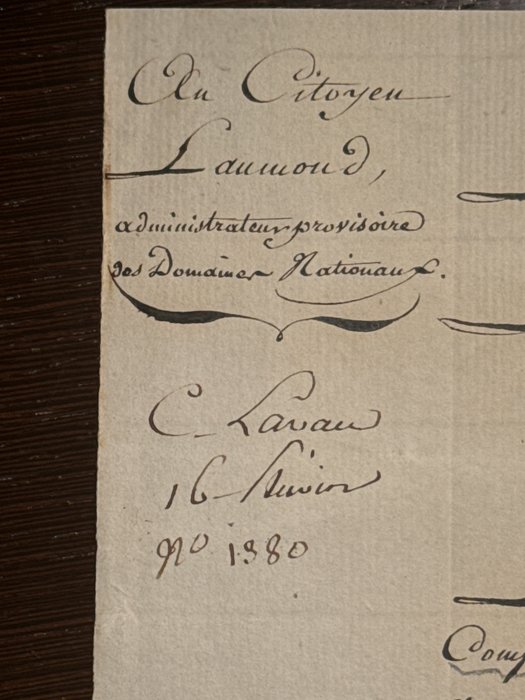 Au Citoyen
Laumond,
administrateur provisoire
des Domaines Nationaux.
C. Lavau
16
No 1380
Com